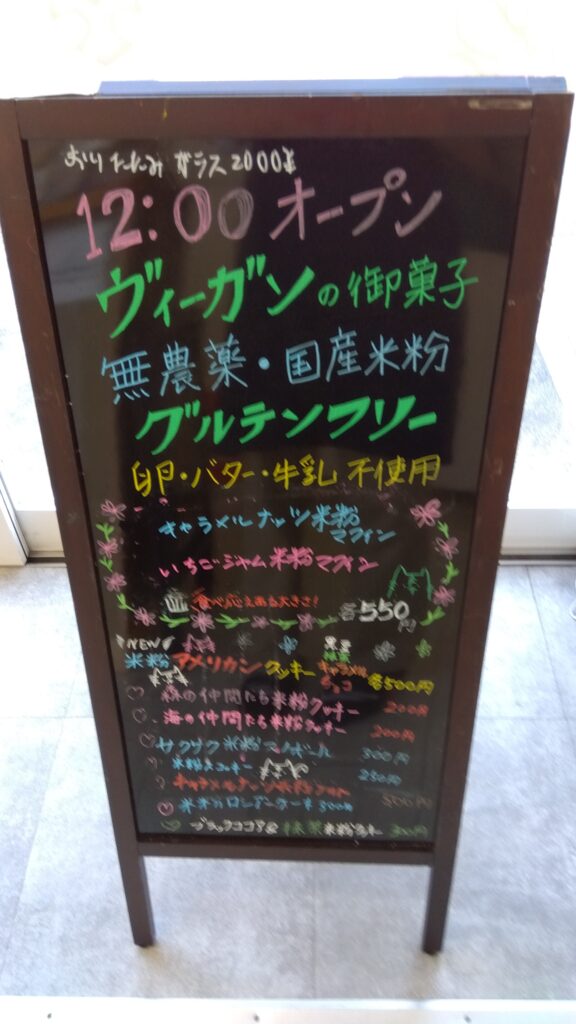 おりたたみ ガラス 2000¥
12:00 オープン
ヴィーガンの御菓子
無農薬・国産米粉
グルテンフリー
卵・バター・牛乳 不使用
キャラメルナッツ米粉
マフィン
いちごジャム米粉マフィン
食べ応えある大きさ!
各550円
NEW
米粉アメリカンクッキー
黒豆
抹茶
キャラメル
チョコ
各500円
森の仲間たち米粉クッキー 200円
海の仲間たち米粉クッキー 200円
サクサク米粉スノーボール 300円
米粉クッキー 250円
キャラメルナッツ米粉 500円
米粉 500円
ブラックココア&抹茶米粉 300円